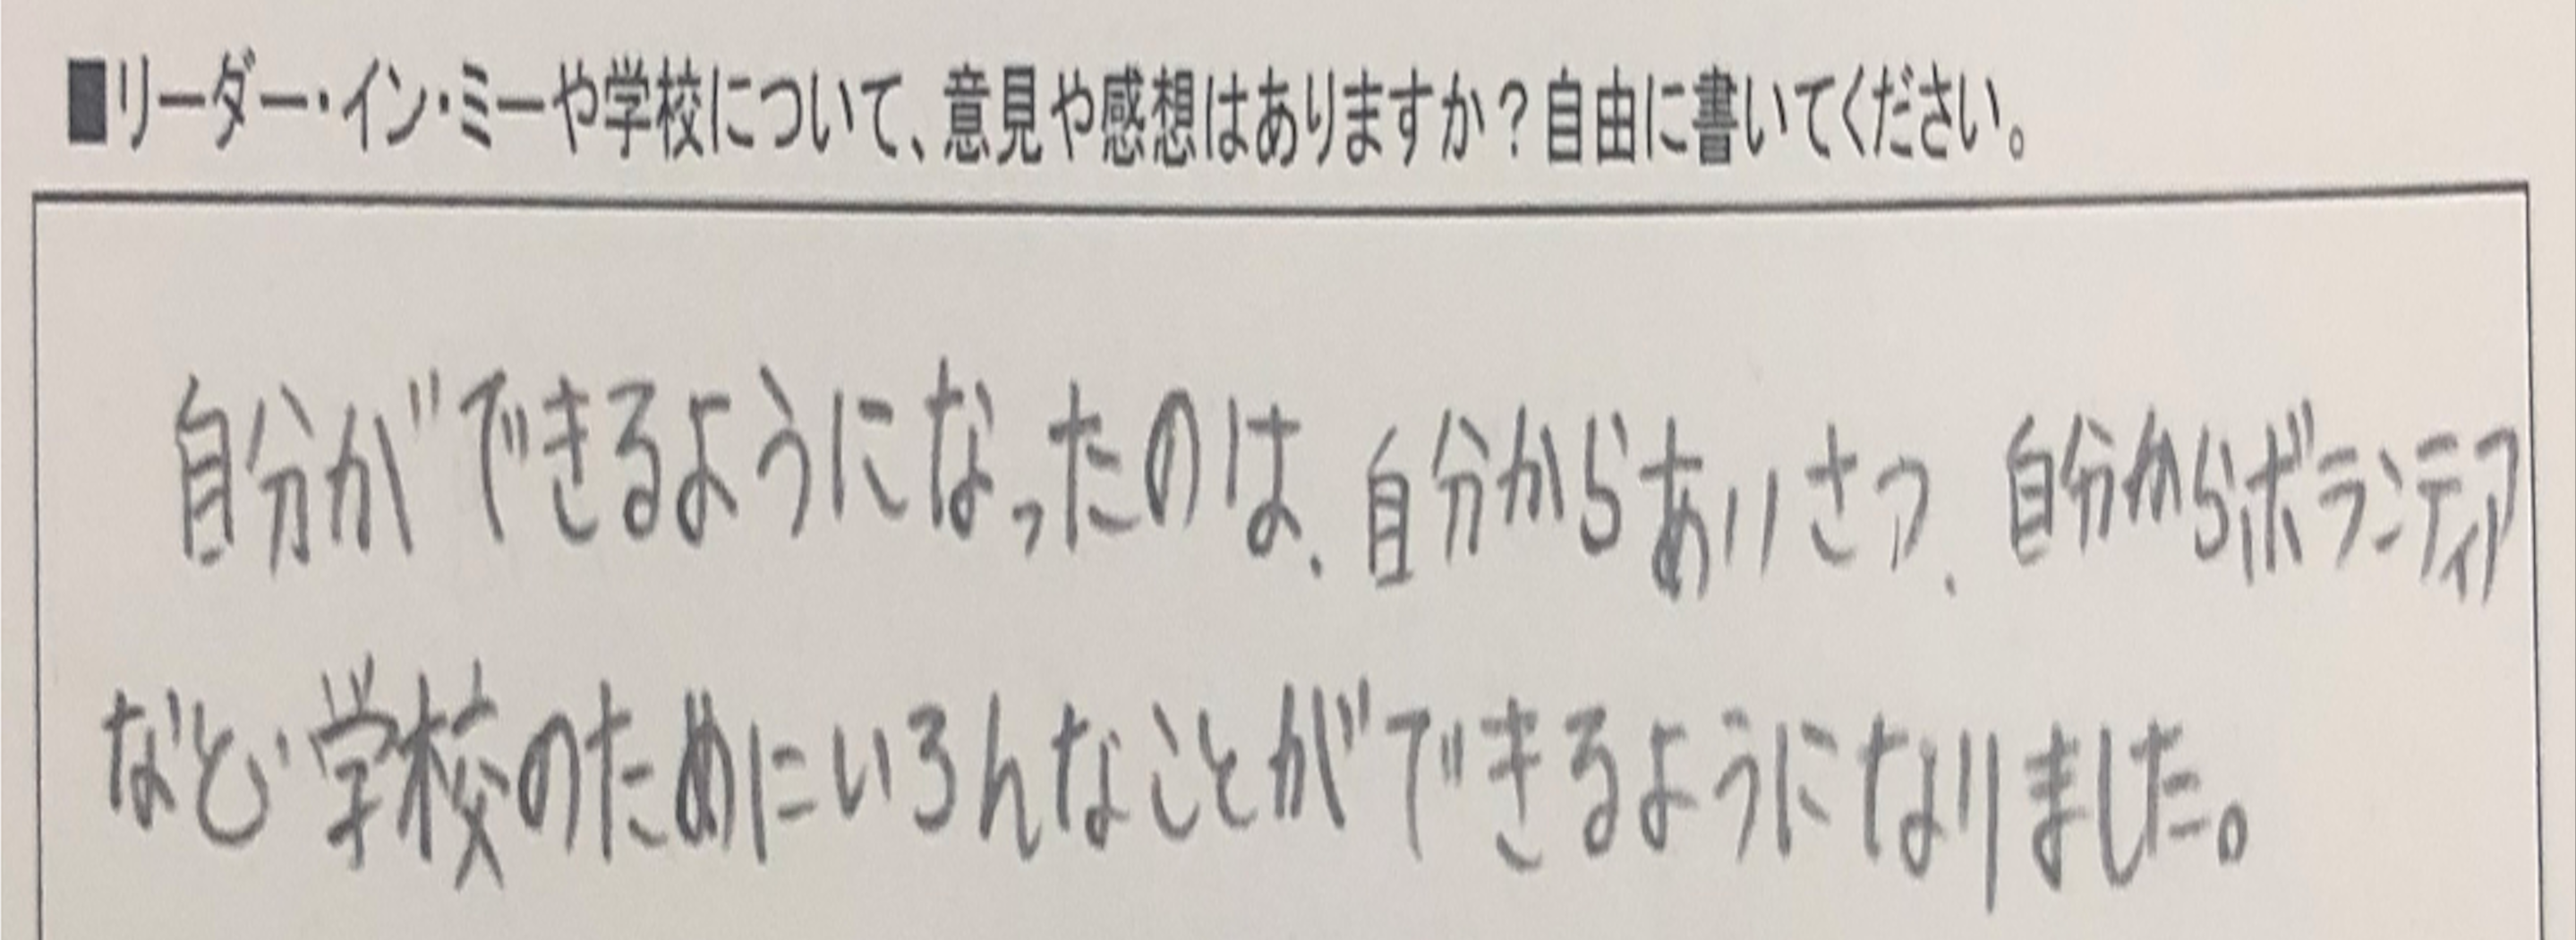 ■リーダー・イン・ミーや学校について、意見や感想はありますか？自由に書いてください。
自分ができるようになったのは、自分からあいさつ、自分からボランティア
など学校のためにいろんなことができるようになりました。